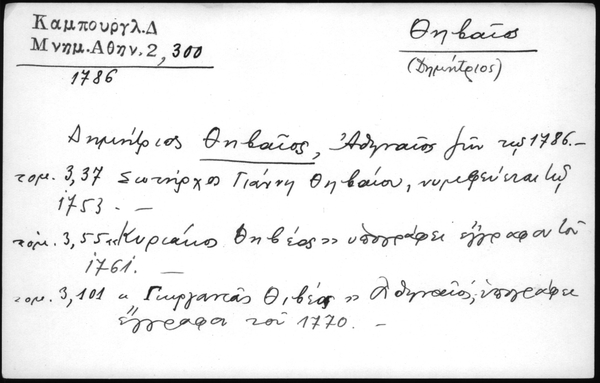 Καμπούργλ.Δ
Μνημ.Αθην.2, 300
1786
Θηβαῖος
(Δημήτριος)
Δημήτριος Θηβαῖος, Ἀθηναῖος ζῶν τῷ 1786.–
τομ. 3,37 Σωτήρχος Γιάννη Θηβαίου, νυμφεύεται τῷ
1753. –
τόμ. 3,55 «Κυριάκος Θηβέος» ὑπογράφει ἔγγραφον τοῦ
1761. –
τομ. 3,101 « Γεωργαντᾶς Θιβέος » Ἀθηναῖος, ὑπογράφει
ἔγγραφον τοῦ 1770. –